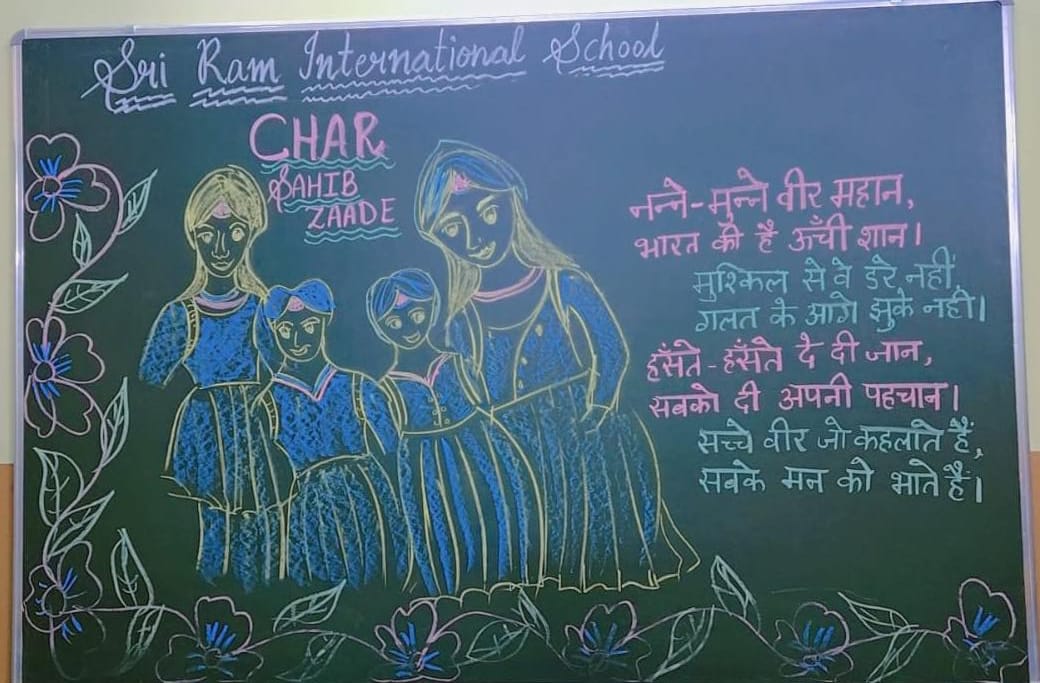 Sri Ram International School
CHAR
SAHIB
ZAADE
नन्ने-मुन्ने वीर महान,
भारत की है ऊँची शान।
मुश्किल से वे डरे नहीं,
गलत के आगे झुके नहीं।
हँसते-हँसते दे दी जान,
सबको दी अपनी पहचान।
सच्चे वीर जो कहलाते हैं,
सबके मन को भाते हैं।